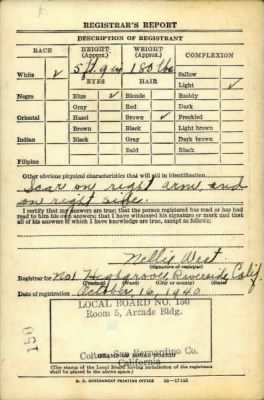 REGISTRAR'S REPORT
DESCRIPTION OF REGISTRANT
RACE
HEIGHT
(Approx.)
WEIGHT
(Approx.)
COMPLEXION
5 ft 9 in
180 lbs
White ✓
EYES
HAIR
Sallow
Light ✓
Negro
Blue ✓
Blonde
Ruddy
Gray
Red
Dark
Oriental
Hazel
Brown ✓
Freckled
Brown
Black
Light brown
Indian
Black
Gray
Dark brown
Bald
Black
Filipino
Other obvious physical characteristics that will aid in identification
Scar on right arm and
on right side.
I certify that my answers are true; that the person registered has read or has had
read to him his own answers; that I have witnessed his signature or mark and that
all of his answers of which I have knowledge are true, except as follows:
Nellie West
(Signature of registrar)
Registrar for No 1 Highgrove Riverside Calif.
(Precinct)
(City or county)
(State)
Date of registration October 16, 1940
LOCAL BOARD NO. 150
Room 5, Arcade Bldg.
150
Bernardino Co.
California
(STAMP OF LOCAL BOARD)
(The stamp of the Local Board having jurisdiction of the registrant
shall be placed in the above space.)
U. S. GOVERNMENT PRINTING OFFICE 16-17105